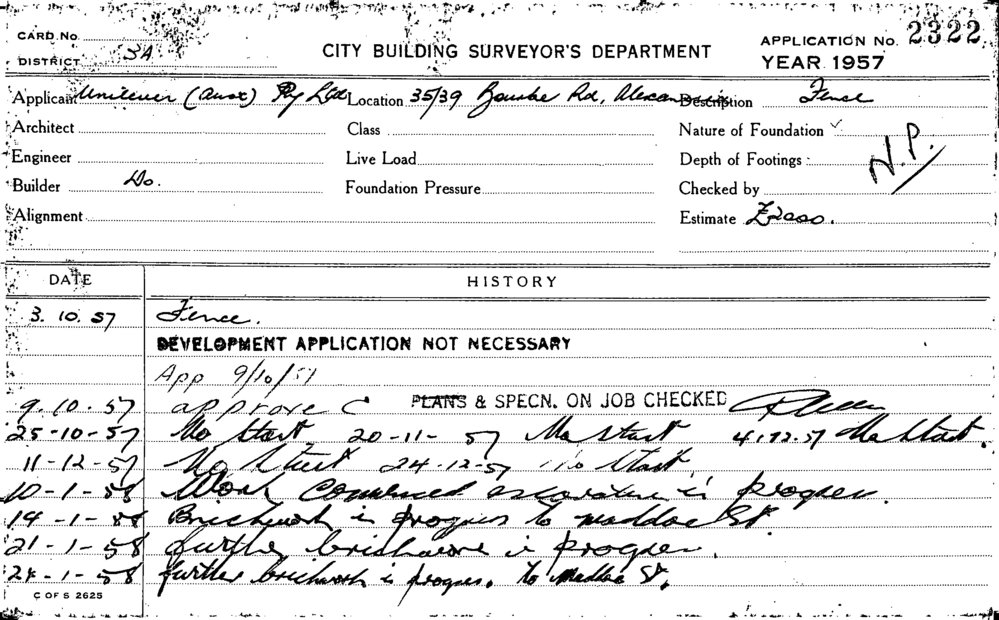 CARD No.
DISTRICT 3A
CITY BUILDING SURVEYOR'S DEPARTMENT
APPLICATION No. 2322
YEAR 1957
Applicant Unilever (Aust) Pty Ltd Location 35/39 Bourke Rd, Alexandria Description Fence
Architect Class Nature of Foundation
Engineer Live Load Depth of Footings N.P.
Builder Do. Foundation Pressure Checked by
Alignment Estimate £2000.
DATE HISTORY
3. 10. 57 Fence.
DEVELOPMENT APPLICATION NOT NECESSARY
App 9/10/57
9. 10. 57 approve C PLANS & SPECN. ON JOB CHECKED
25-10-57 No Start 20-11-57 No Start 4.12.57 No Start.
11-12-57 No Start 24-12-57 No Start
10-1-58 Work Commenced excavation is progress.
14-1-58 Brickwork in progress to Maddox St
21-1-58 further brickwork in progress.
24-1-58 further brickwork in progress. to Maddox St.
C OF S 2625